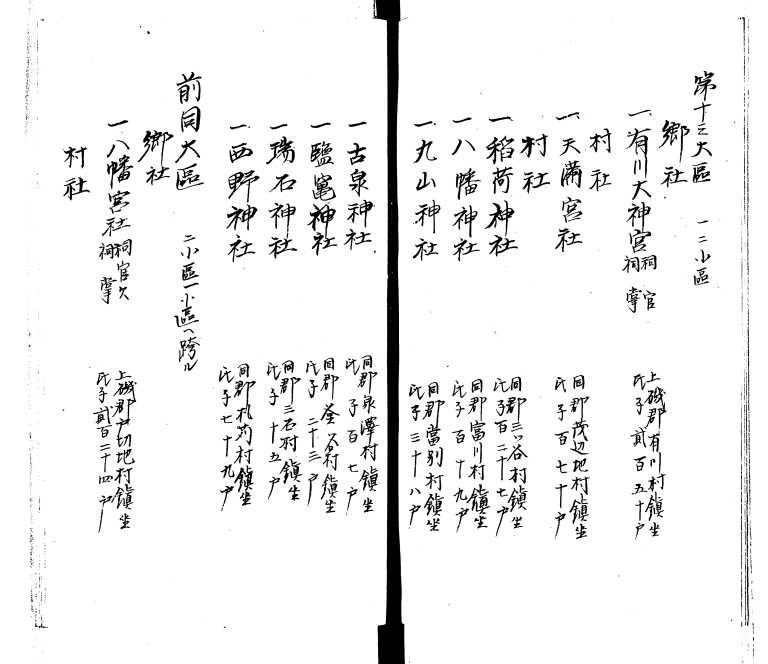 第十三大區 一二小區
鄉社
一有川大神宮 祠官 祠掌
上磯郡有川村鎮坐
氏子貳百五十戶
村社
一天満宮社
同郡茂辺地村鎮坐
氏子百七十戶
村社
一稻荷神社
同郡三ツ谷村鎮坐
氏子百二十七戶
一八幡神社
同郡富川村鎮坐
氏子百十九戶
一丸山神社
同郡當別村鎮坐
氏子三十八戶
一古泉神社
同郡泉澤村鎮坐
氏子百七戶
一鹽竃神社
同郡釜谷村鎮坐
氏子二十三戶
一瑞石神社
同郡三石村鎮坐
氏子十五戶
一西野神社
同郡札苅村鎮坐
氏子七十九戶
前同大區 二小區一小區ヘ跨ル
鄉社
一八幡宮社 祠官欠 祠掌
上磯郡戸切地村鎮坐
氏子貳百二十四戶
村社